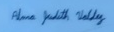 Alma Judith Valdez